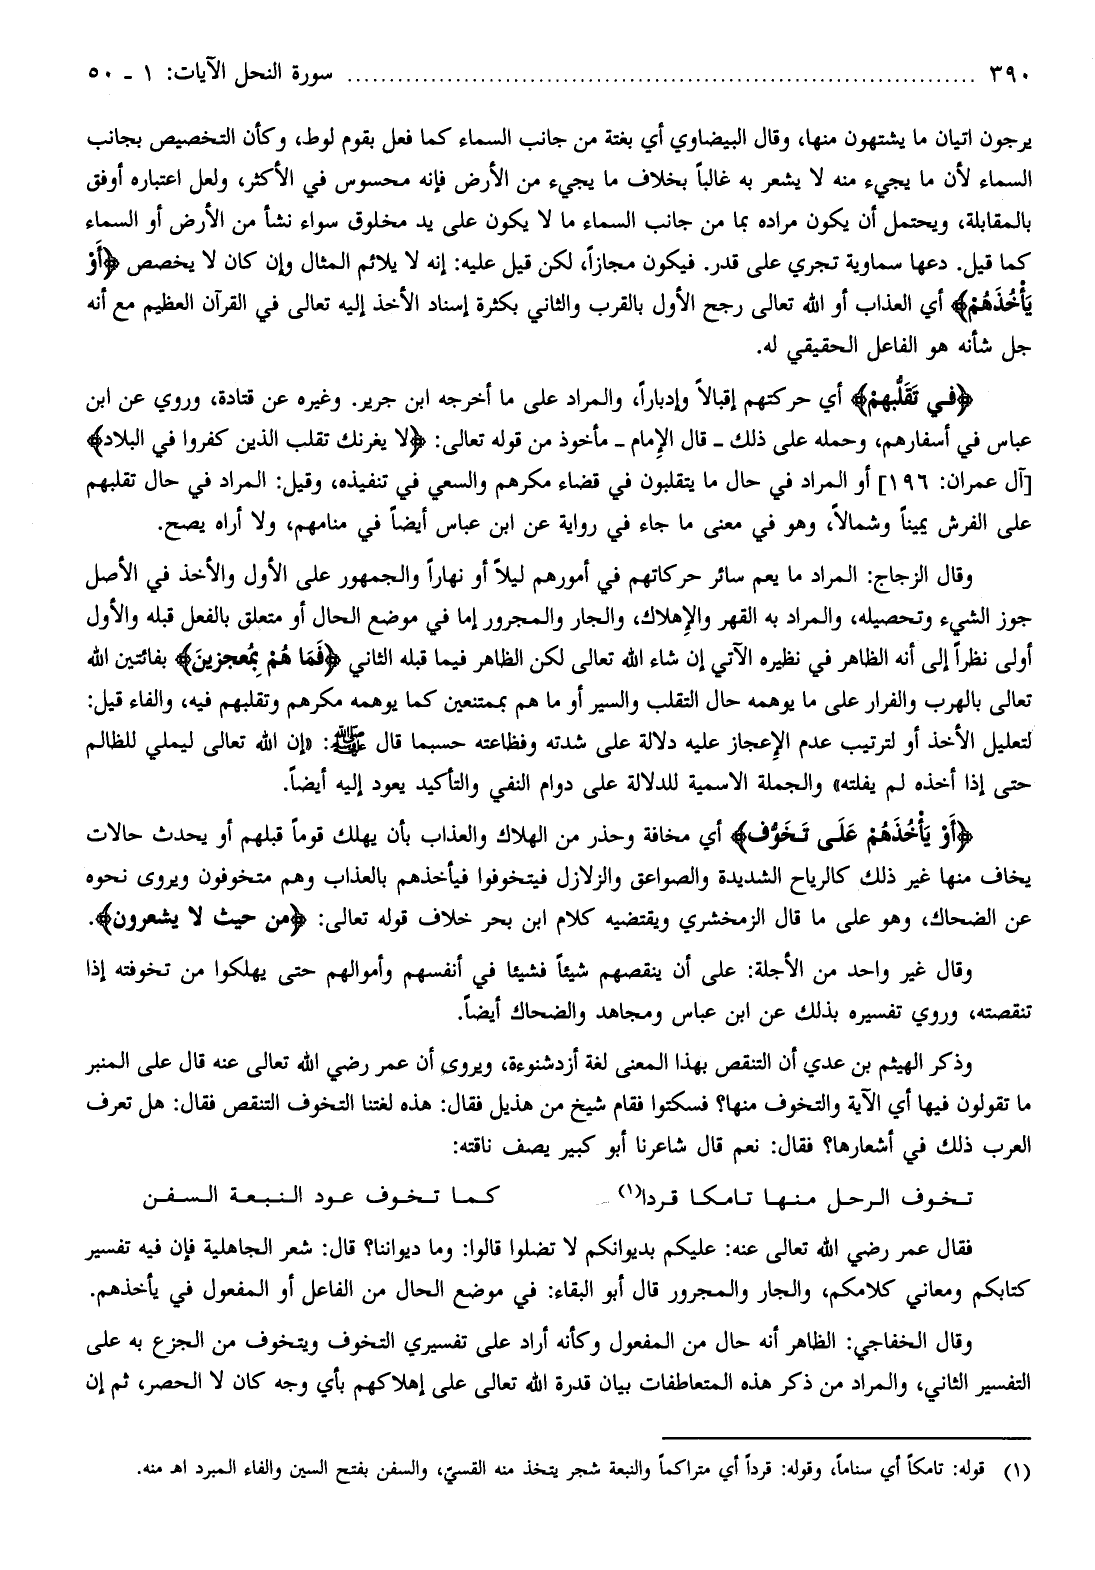 ٣٩٠ ........................................................................ سورة النحل الآيات: ١ ـ ٥٠
يرجون اتيان ما يشتهون منها، وقال البيضاوي أي بغتة من جانب السماء كما فعل بقوم لوط، وكأن التخصيص بجانب
السماء لأن ما يجيء منه لا يشعر به غالباً بخلاف ما يجيء من الأرض فإنه محسوس في الأكثر، ولعل اعتباره أوفق
بالمقابلة، ويحتمل أن يكون مراده بما من جانب السماء ما لا يكون على يد مخلوق سواء نشأ من الأرض أو السماء
كما قيل. دعها سماوية تجري على قدر. فيكون مجازاً، لكن قيل عليه: إنه لا يلائم المثال وإن كان لا يخصص ﴿أَوْ
يَأْخُذَهُمْ﴾ أي العذاب أو الله تعالى رجح الأول بالقرب والثاني بكثرة إسناد الأخذ إليه تعالى في القرآن العظيم مع أنه
جل شأنه هو الفاعل الحقيقي له.
﴿فِي تَقَلُّبِهِمْ﴾ أي حركتهم إقبالاً وإدباراً، والمراد على ما أخرجه ابن جرير. وغيره عن قتادة، وروي عن ابن
عباس في أسفارهم، وحمله على ذلك ـ قال الإمام ـ مأخوذ من قوله تعالى: ﴿لا يغرنك تقلب الذين كفروا في البلاد﴾
[آل عمران: ١٩٦] أو المراد في حال ما يتقلبون في قضاء مكرهم والسعي في تنفيذه، وقيل: المراد في حال تقلبهم
على الفرش يميناً وشمالاً، وهو في معنى ما جاء في رواية عن ابن عباس أيضاً في منامهم، ولا أراه يصح.
وقال الزجاج: المراد ما يعم سائر حركاتهم في أمورهم ليلاً أو نهاراً والجمهور على الأول والأخذ في الأصل
جوز الشيء وتحصيله، والمراد به القهر والإهلاك، والجار والمجرور إما في موضع الحال أو متعلق بالفعل قبله والأول
أولى نظراً إلى أنه الظاهر في نظيره الآتي إن شاء الله تعالى لكن الظاهر فيما قبله الثاني ﴿فَمَا هُمْ بِمُعجزينَ﴾ بفائتين الله
تعالى بالهرب والفرار على ما يوهمه حال التقلب والسير أو ما هم بممتنعين كما يوهمه مكرهم وتقلبهم فيه، والفاء قيل:
لتعليل الأخذ أو لترتيب عدم الإعجاز عليه دلالة على شدته وفظاعته حسبما قال ﷺ: «إن الله تعالى ليملي للظالم
حتى إذا أخذه لم يفلته» والجملة الاسمية للدلالة على دوام النفي والتأكيد يعود إليه أيضاً.
﴿أَوْ يَأْخُذَهُمْ عَلَى تَخَوُّف﴾ أي مخافة وحذر من الهلاك والعذاب بأن يهلك قوماً قبلهم أو يحدث حالات
يخاف منها غير ذلك كالرياح الشديدة والصواعق والزلازل فيتخوفوا فيأخذهم بالعذاب وهم متخوفون ويروى نحوه
عن الضحاك، وهو على ما قال الزمخشري ويقتضيه كلام ابن بحر خلاف قوله تعالى: ﴿من حيث لا يشعرون﴾.
وقال غير واحد من الأجلة: على أن ينقصهم شيئاً فشيئا في أنفسهم وأموالهم حتى يهلكوا من تخوفته إذا
تنقصته، وروي تفسيره بذلك عن ابن عباس ومجاهد والضحاك أيضاً.
وذكر الهيثم بن عدي أن التنقص بهذا المعنى لغة أزدشنوءة، ويروى أن عمر رضي الله تعالى عنه قال على المنبر
ما تقولون فيها أي الآية والتخوف منها؟ فسكتوا فقام شيخ من هذيل فقال: هذه لغتنا التخوف التنقص فقال: هل تعرف
العرب ذلك في أشعارها؟ فقال: نعم قال شاعرنا أبو كبير يصف ناقته:
تخوف الرحل منها تامكا قردا(١) كما تخوف عود النبعة السفن
فقال عمر رضي الله تعالى عنه: عليكم بديوانكم لا تضلوا قالوا: وما ديواننا؟ قال: شعر الجاهلية فإن فيه تفسير
كتابكم ومعاني كلامكم، والجار والمجرور قال أبو البقاء: في موضع الحال من الفاعل أو المفعول في يأخذهم.
وقال الخفاجي: الظاهر أنه حال من المفعول وكأنه أراد على تفسيري التخوف ويتخوف من الجزع به على
التفسير الثاني، والمراد من ذكر هذه المتعاطفات بيان قدرة الله تعالى على إهلاكهم بأي وجه كان لا الحصر، ثم إن
(١) قوله: تامكاً أي سناماً، وقوله: قرداً أي متراكماً والنبعة شجر يتخذ منه القسيّ، والسفن بفتح السين والفاء المبرد اهـ منه.